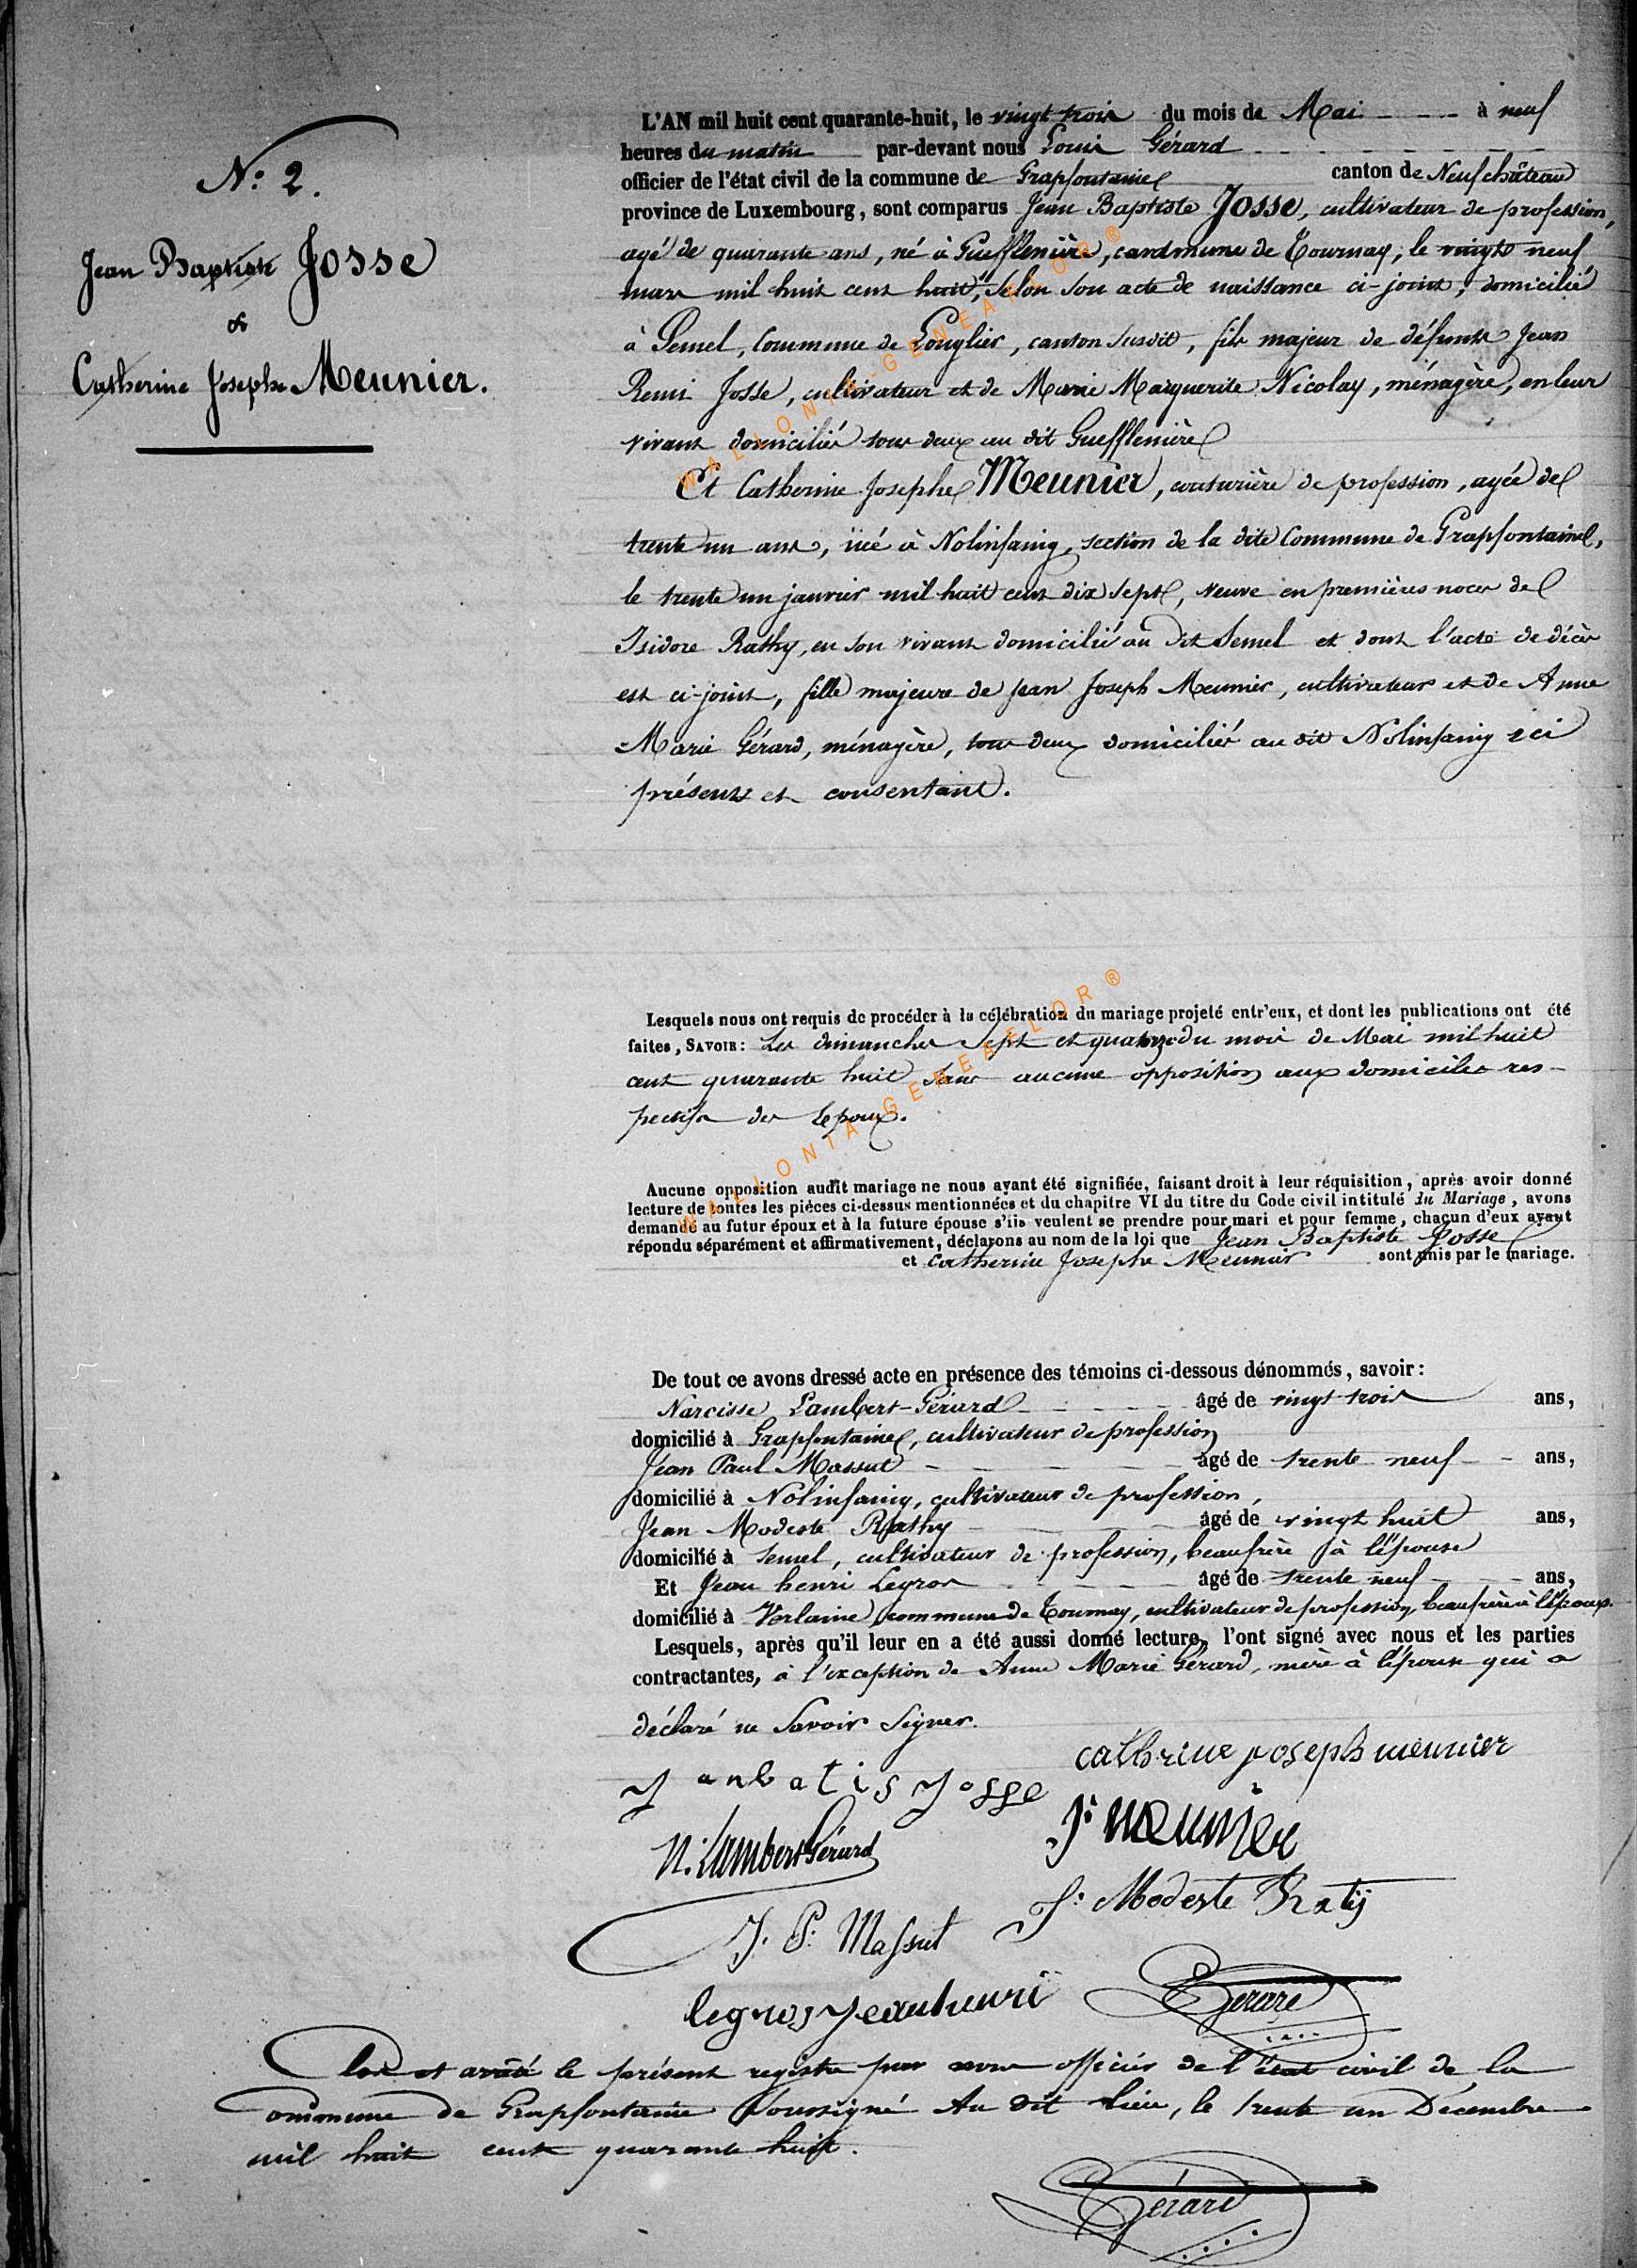 N.° 2.
Jean Baptiste Josse
&
Catherine Josephe Meunier.
L'AN mil huit cent quarante-huit, le vingt trois du mois de Mai à neuf
heures du matin par-devant nous Louis Gérard
officier de l'état civil de la commune de Grapfontaine canton de Neufchâteau
province de Luxembourg, sont comparus Jean Baptiste Josse, cultivateur de profession,
agé de quarante ans, né à Guefflenière, commune de Tournay, le vingt neuf
mars mil huit cent huit, selon son acte de naissance ci-joint, domicilié
à Semel, Commune de Longlier, canton susdit, fils majeur de défunts Jean
Remi Josse, cultivateur et de Marie Marguerite Nicolay, ménagère, en leur
vivant domiciliés tous deux au dit Guefflenière
Et Catherine Josephe Meunier, couturière de profession, agée de
trente un ans, née à Nolinfaing, section de la dite Commune de Grapfontaine,
le trente un janvier mil huit cent dix sept, veuve en premières noces de
Isidore Rathy, en son vivant domicilié au dit Semel et dont l'acte de décès
est ci-joint, fille majeure de Jean Joseph Meunier, cultivateur et de Anne
Marie Gérard, ménagère, tous deux domiciliés au dit Nolinfaing ici
présents et consentant.
Lesquels nous ont requis de procéder à la célébration du mariage projeté entr'eux, et dont les publications ont été
faites, SAVOIR: Les dimanches Sept et quatorze du mois de Mai mil huit
cent quarante huit sans aucune opposition aux domiciles res-
pectifs des Epoux.
Aucune opposition audit mariage ne nous ayant été signifiée, faisant droit à leur réquisition, après avoir donné
lecture de toutes les pièces ci-dessus mentionnées et du chapitre VI du titre du Code civil intitulé du Mariage, avons
demandé au futur époux et à la future épouse s'ils veulent se prendre pour mari et pour femme, chacun d'eux ayant
répondu séparément et affirmativement, déclarons au nom de la loi que Jean Baptiste Josse
et Catherine Josephe Meunier sont unis par le mariage.
De tout ce avons dressé acte en présence des témoins ci-dessous dénommés, savoir:
Narcisse Lambert-Gérard âgé de vingt trois ans,
domicilié à Grapfontaine, cultivateur de profession
Jean Paul Massut âgé de trente neuf ans,
domicilié à Nolinfaing, cultivateur de profession,
Jean Modeste Rathy âgé de vingt huit ans,
domicilié à Semel, cultivateur de profession, beaufrère à l'épouse
Et Jean henri Legros âgé de trente neuf ans,
domicilié à Verlaine commune de Tournay, cultivateur de profession, beaufrère à l'époux.
Lesquels, après qu'il leur en a été aussi donné lecture, l'ont signé avec nous et les parties
contractantes, à l'exception de Anne Marie Gérard, mère à l'épouse qui a
déclaré ne Savoir Signer.
cathrine joseph meunier
Janbatis Josse
J: meunier
N: Lambert Gérard
J: Modeste Raty
J. P. Massut
legros jeanhenri
Gerard
Clos et arrêté le présent registre par nous officier de l'état civil de la
Commune de Grapfontaine soussigné Au dit lieu, le trente un Décembre
mil huit cent quarante huit.
Gérard
WALLONIA-GENEALOR®
WALLONIA-GENEALOR®